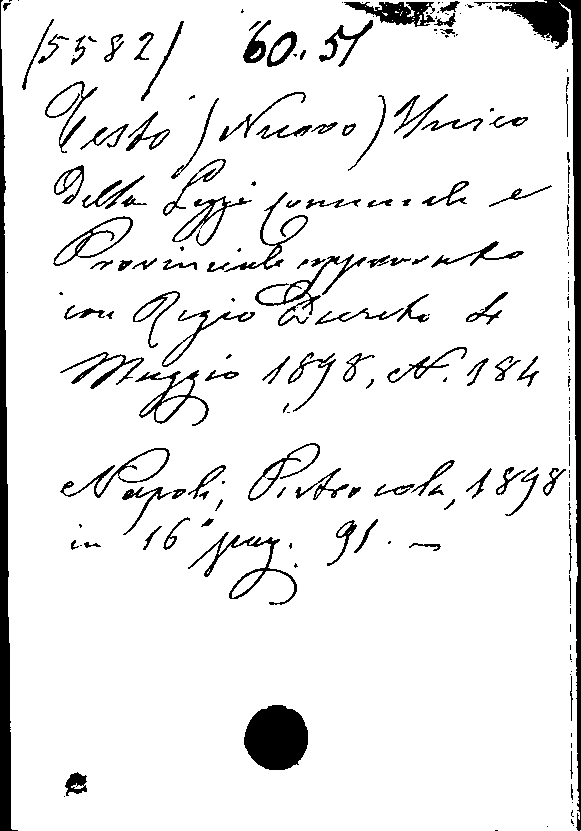 (5582) 60.51
Testo (Nuovo) Unico
della Legge comunale e
Provinciale approvato
con Regio Decreto 4
Maggio 1898, N. 184
Napoli, Pietrocola, 1898
in 16° pag. 91. —